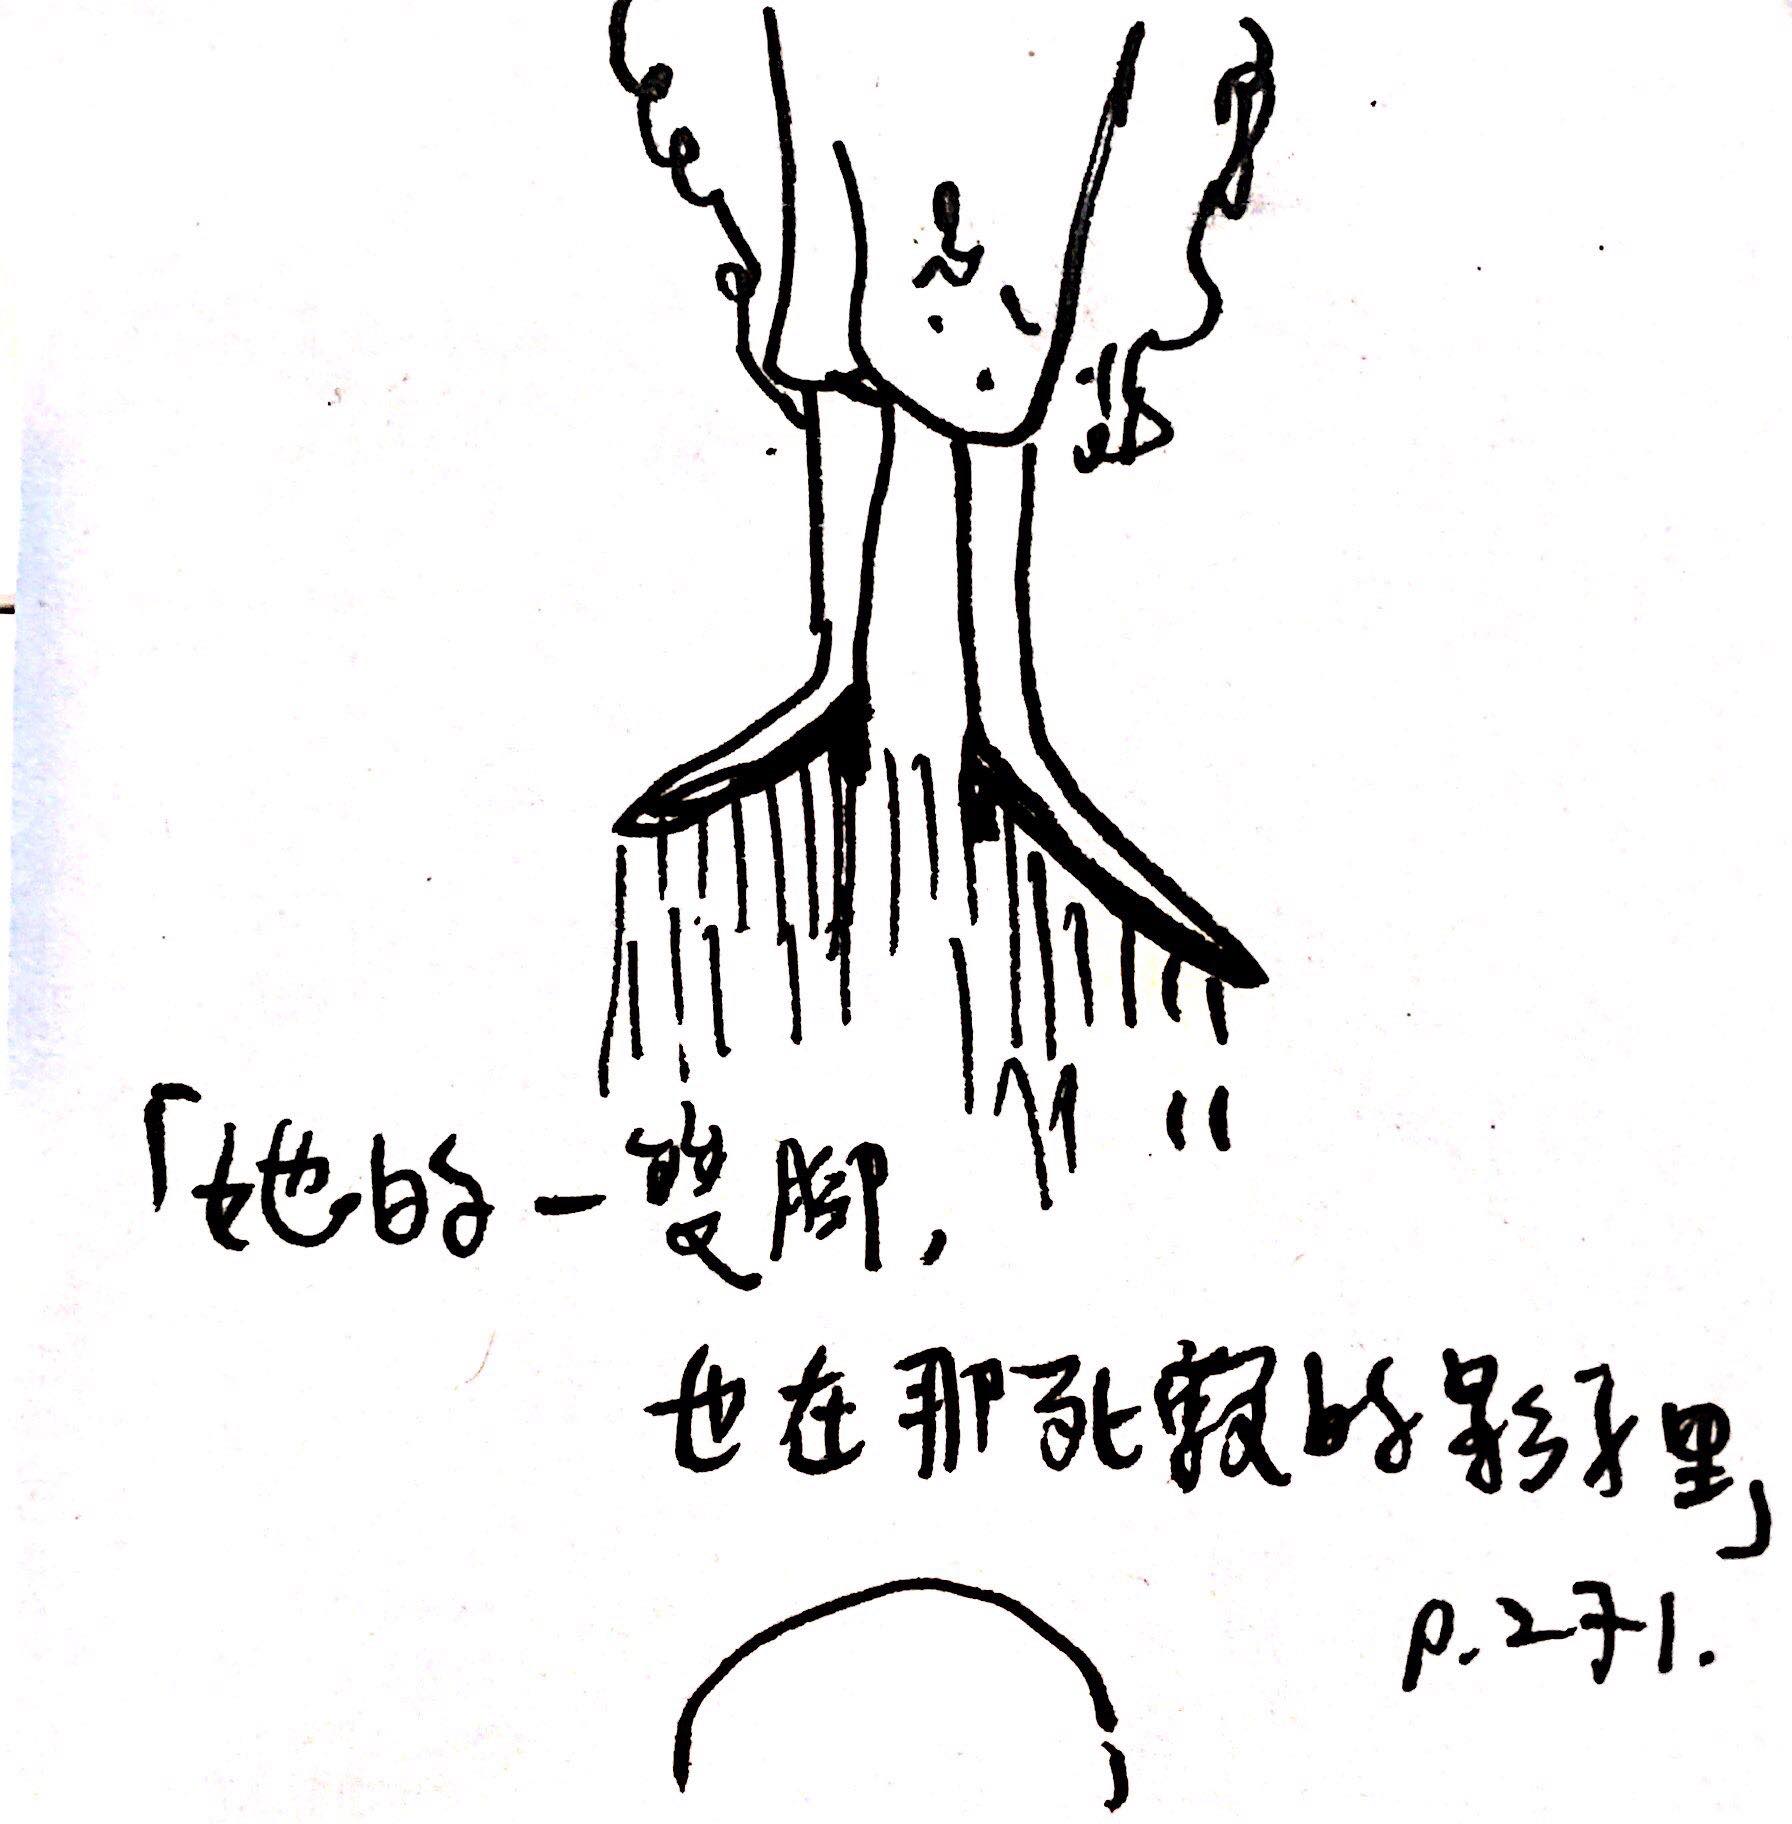 「她的一雙腳,
也在那死寂的影子里」
p.271.